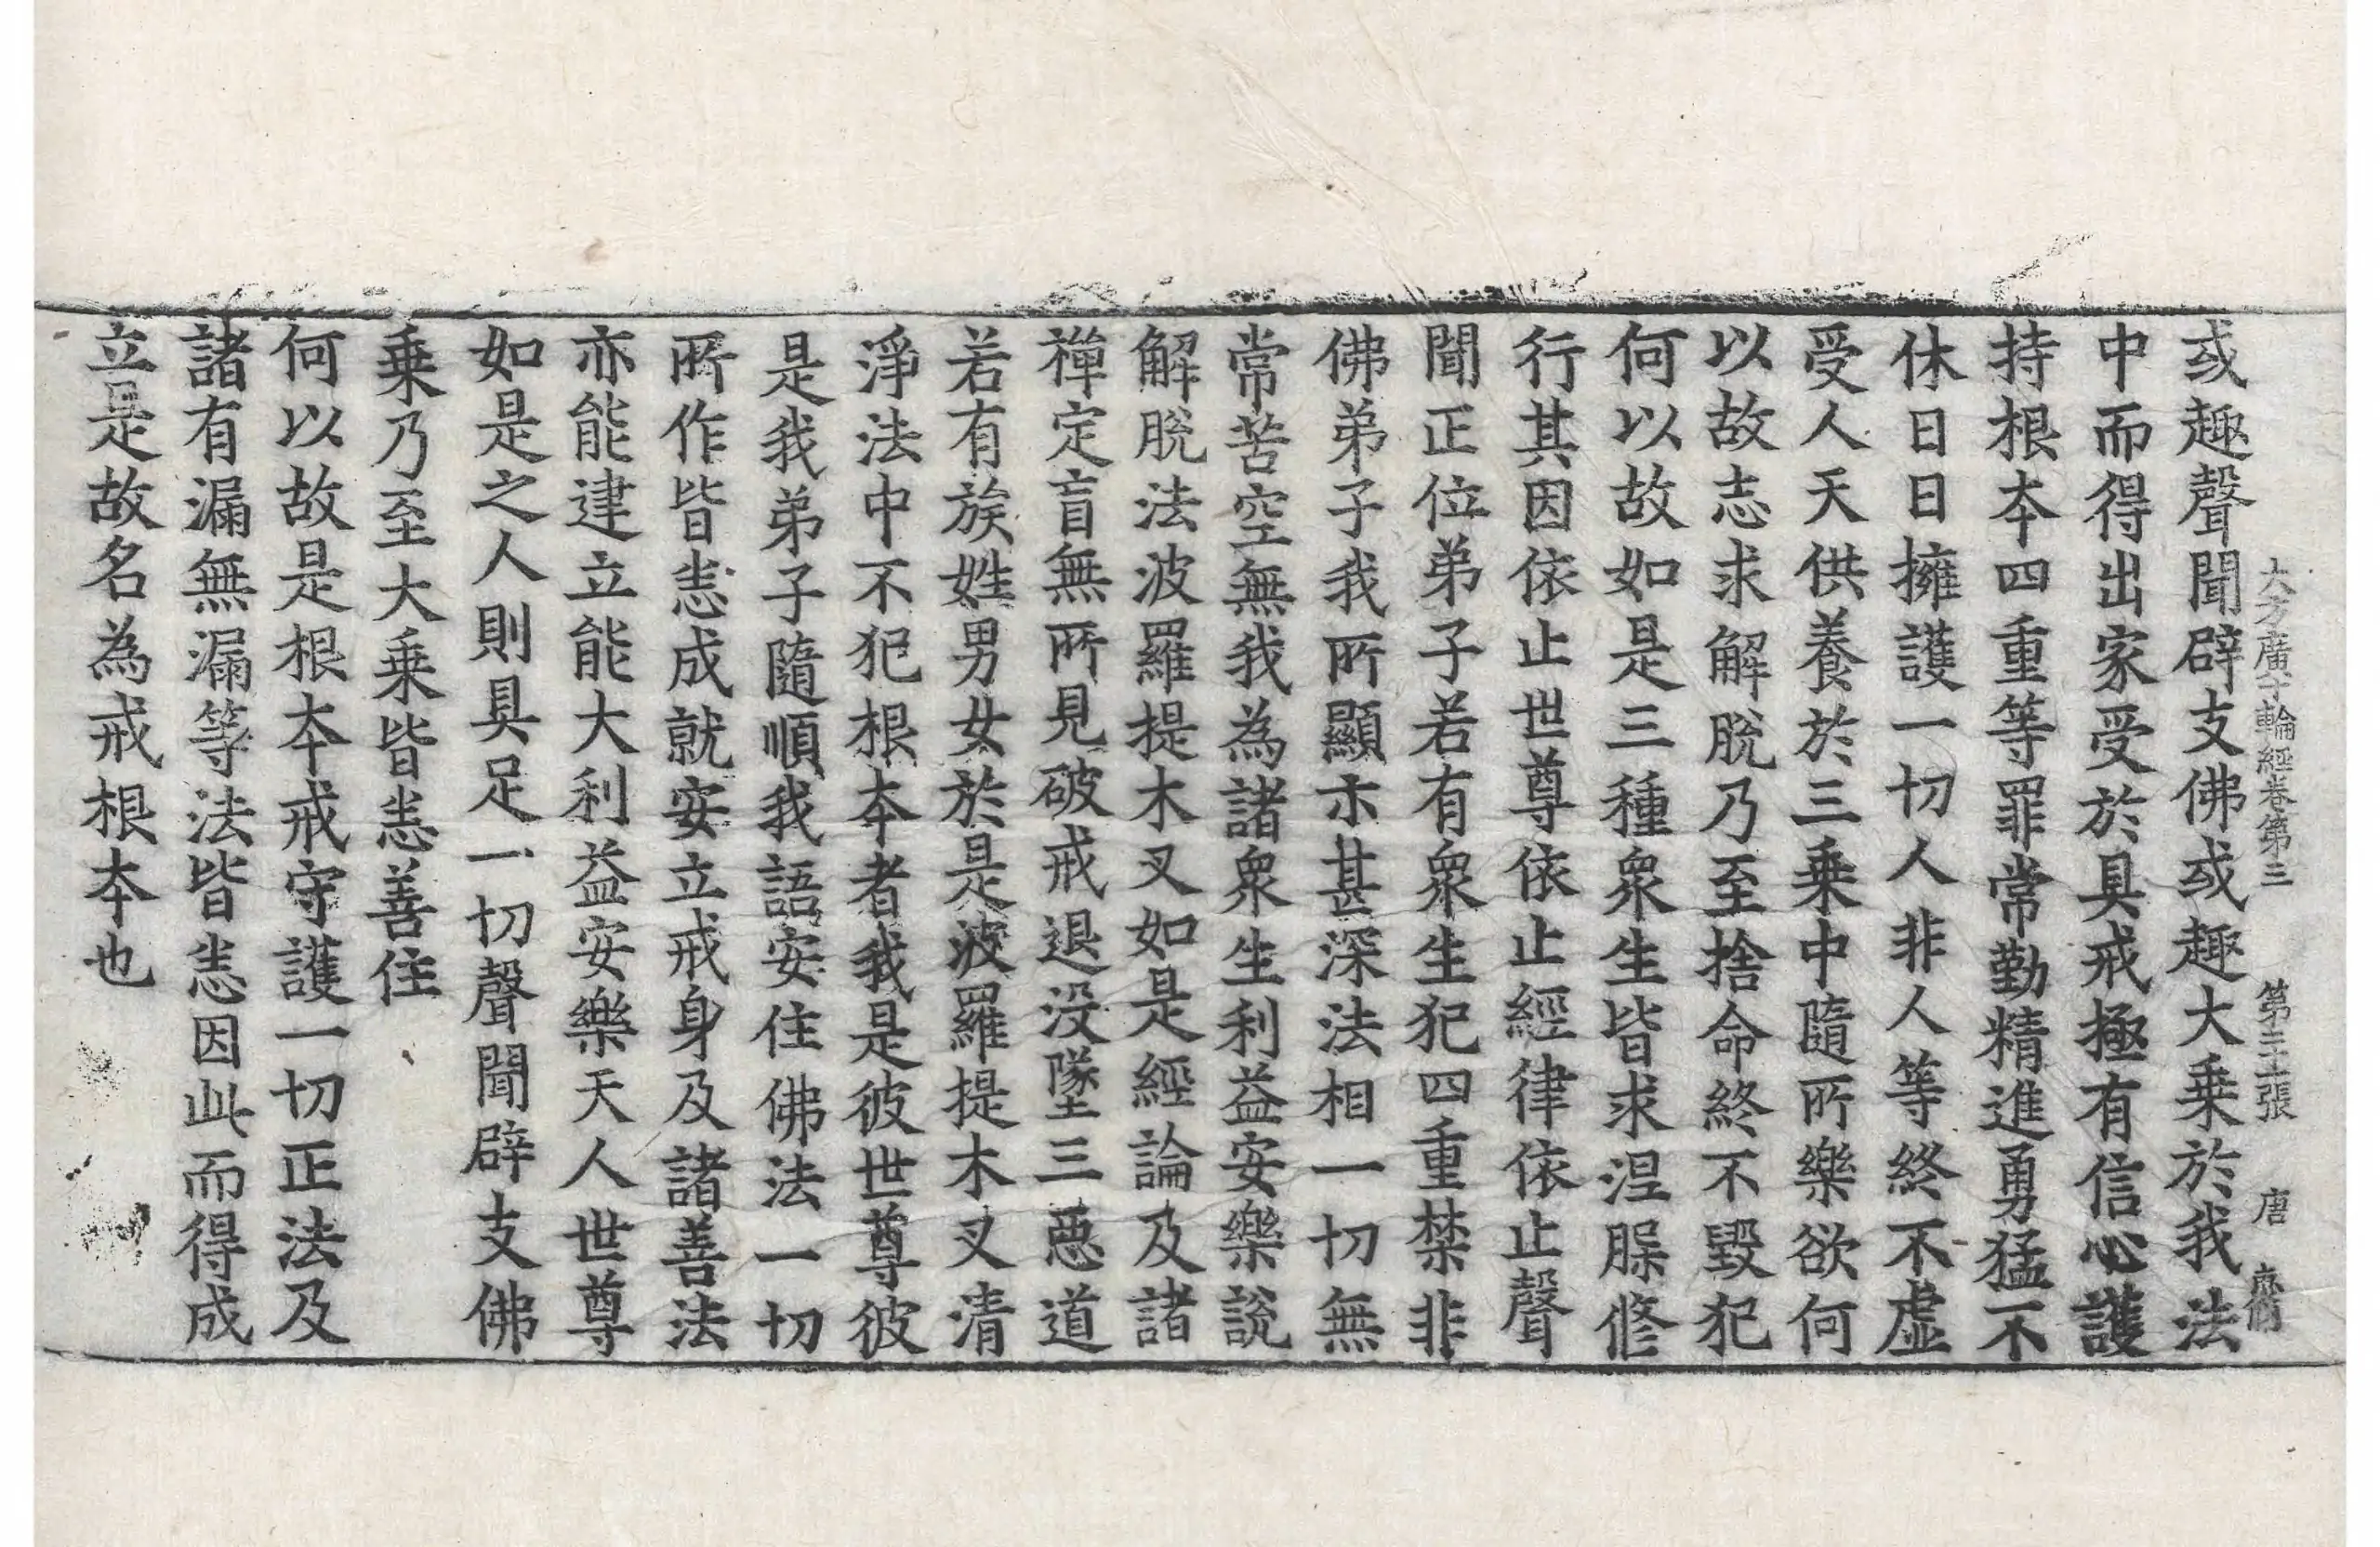 大方廣十輪經卷第三　第二十張　唐　齋
或趣聲聞辟支佛或趣大乗於我法
中而得出家受於具戒極有信心護
持根夲四重等罪常勤精進勇猛不
休日日擁護一切人非人等終不虛
受人天供養於三乗中隨所樂欲何
以故志求解脫乃至捨命終不毀犯
何以故如是三種衆生皆求涅脲修
行其因依止世尊依止經律依止聲
聞正位弟子若有衆生犯四重禁非
佛弟子我所顯示甚深法相一切無
常苦空無我為諸衆生利益安樂說
解脫法波羅提木叉如是經論及諸
禪定盲無所見破戒退没墜三惡道
若有族姓男女於是波羅提木叉清
淨法中不犯根夲者我是彼世尊彼
是我弟子隨順我語安住佛法一切
所作皆悉成就安立戒身及諸善法
亦能建立能大利益安樂天人世尊
如是之人則具足一切聲聞辟支佛
乗乃至大乗皆悉善住
何以故是根夲戒守護一切正法及
諸有漏無漏等法皆悉因此而得成
立是故名為戒根夲也